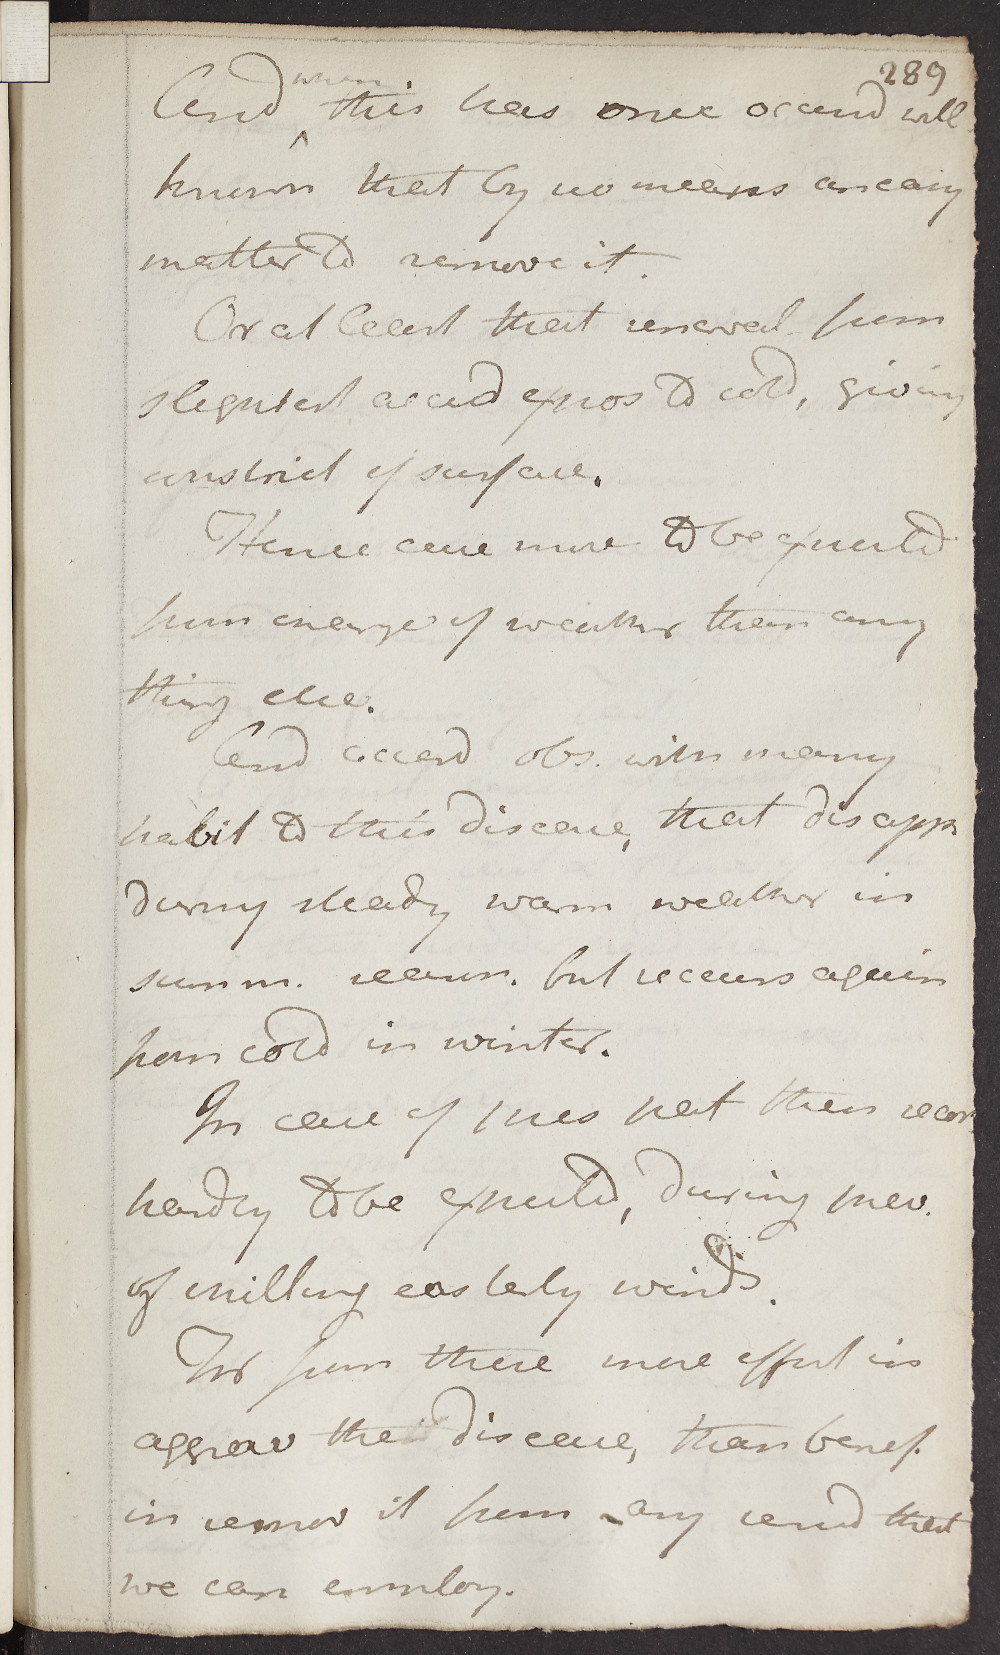 289
And when this has once occurrd well
known that by no means an easy
matter to remove it.
Or at least that renewal from
slightest accid expos to cold, giving
constrict of surface.
Hence cure more to be expected
from change of weather than any
thing else.
And accord obs. with many
habit to this disease, that disappr
during steady warm weather in
summ. season. but recurs again
from cold in winter.
In case of pres pat then recov
hardly to be expected, during prev.
of chilling easterly winds.
For from these more effect in
aggrav the disease, than benef.
in remov it from any remd that
we can employ.